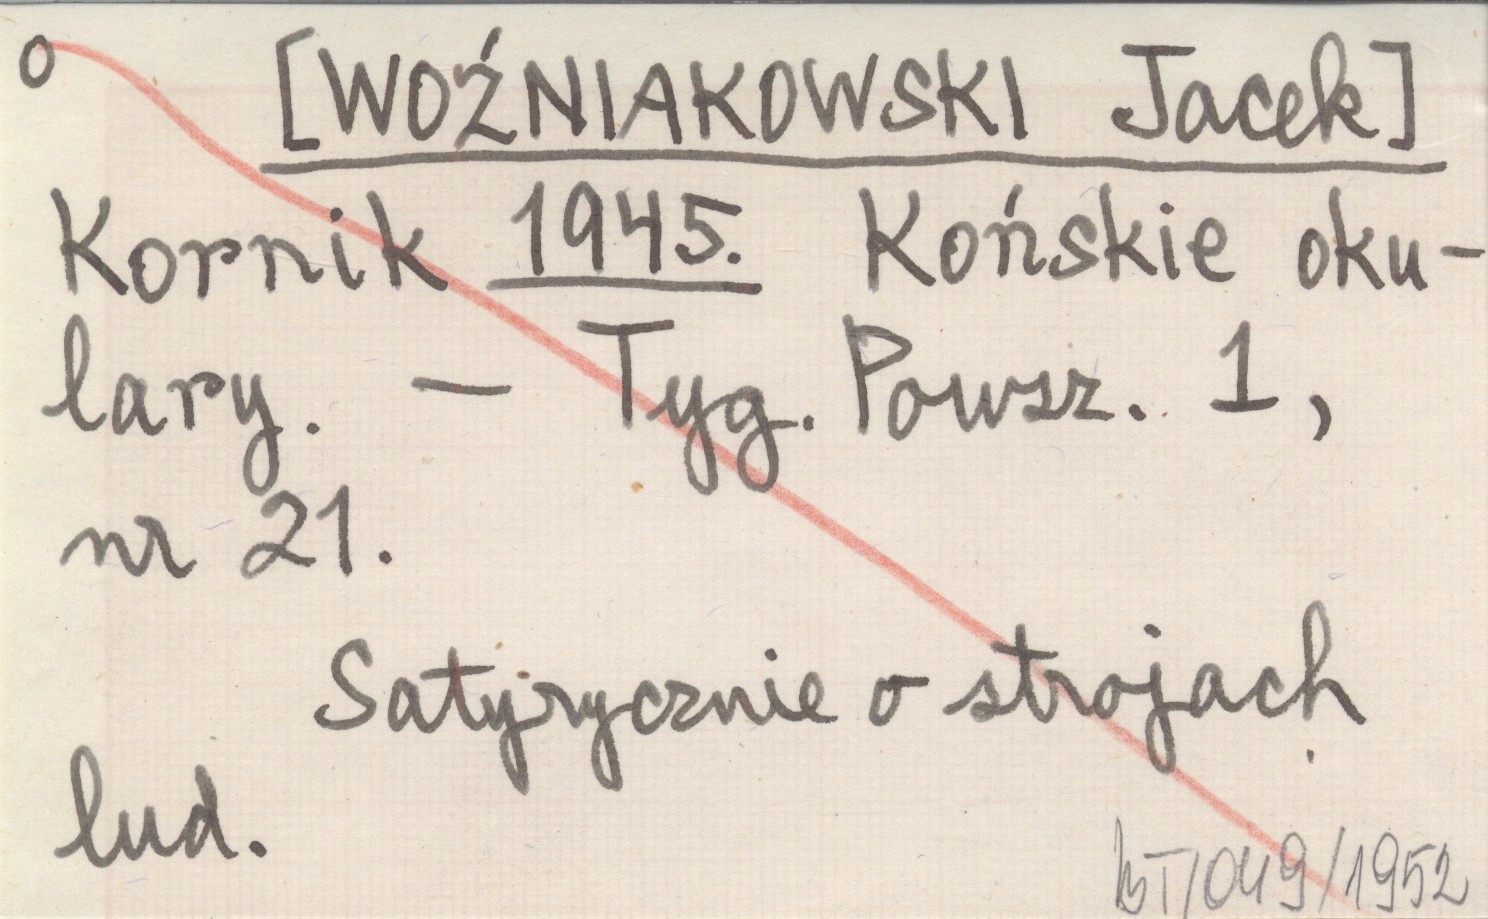 o [WOŹNIAKOWSKI Jacek]
Kornik 1945. Końskie oku-
lary. — Tyg. Powsz. 1,
nr 21.
Satyrycznie o strojach
lud.
BT/049/1952